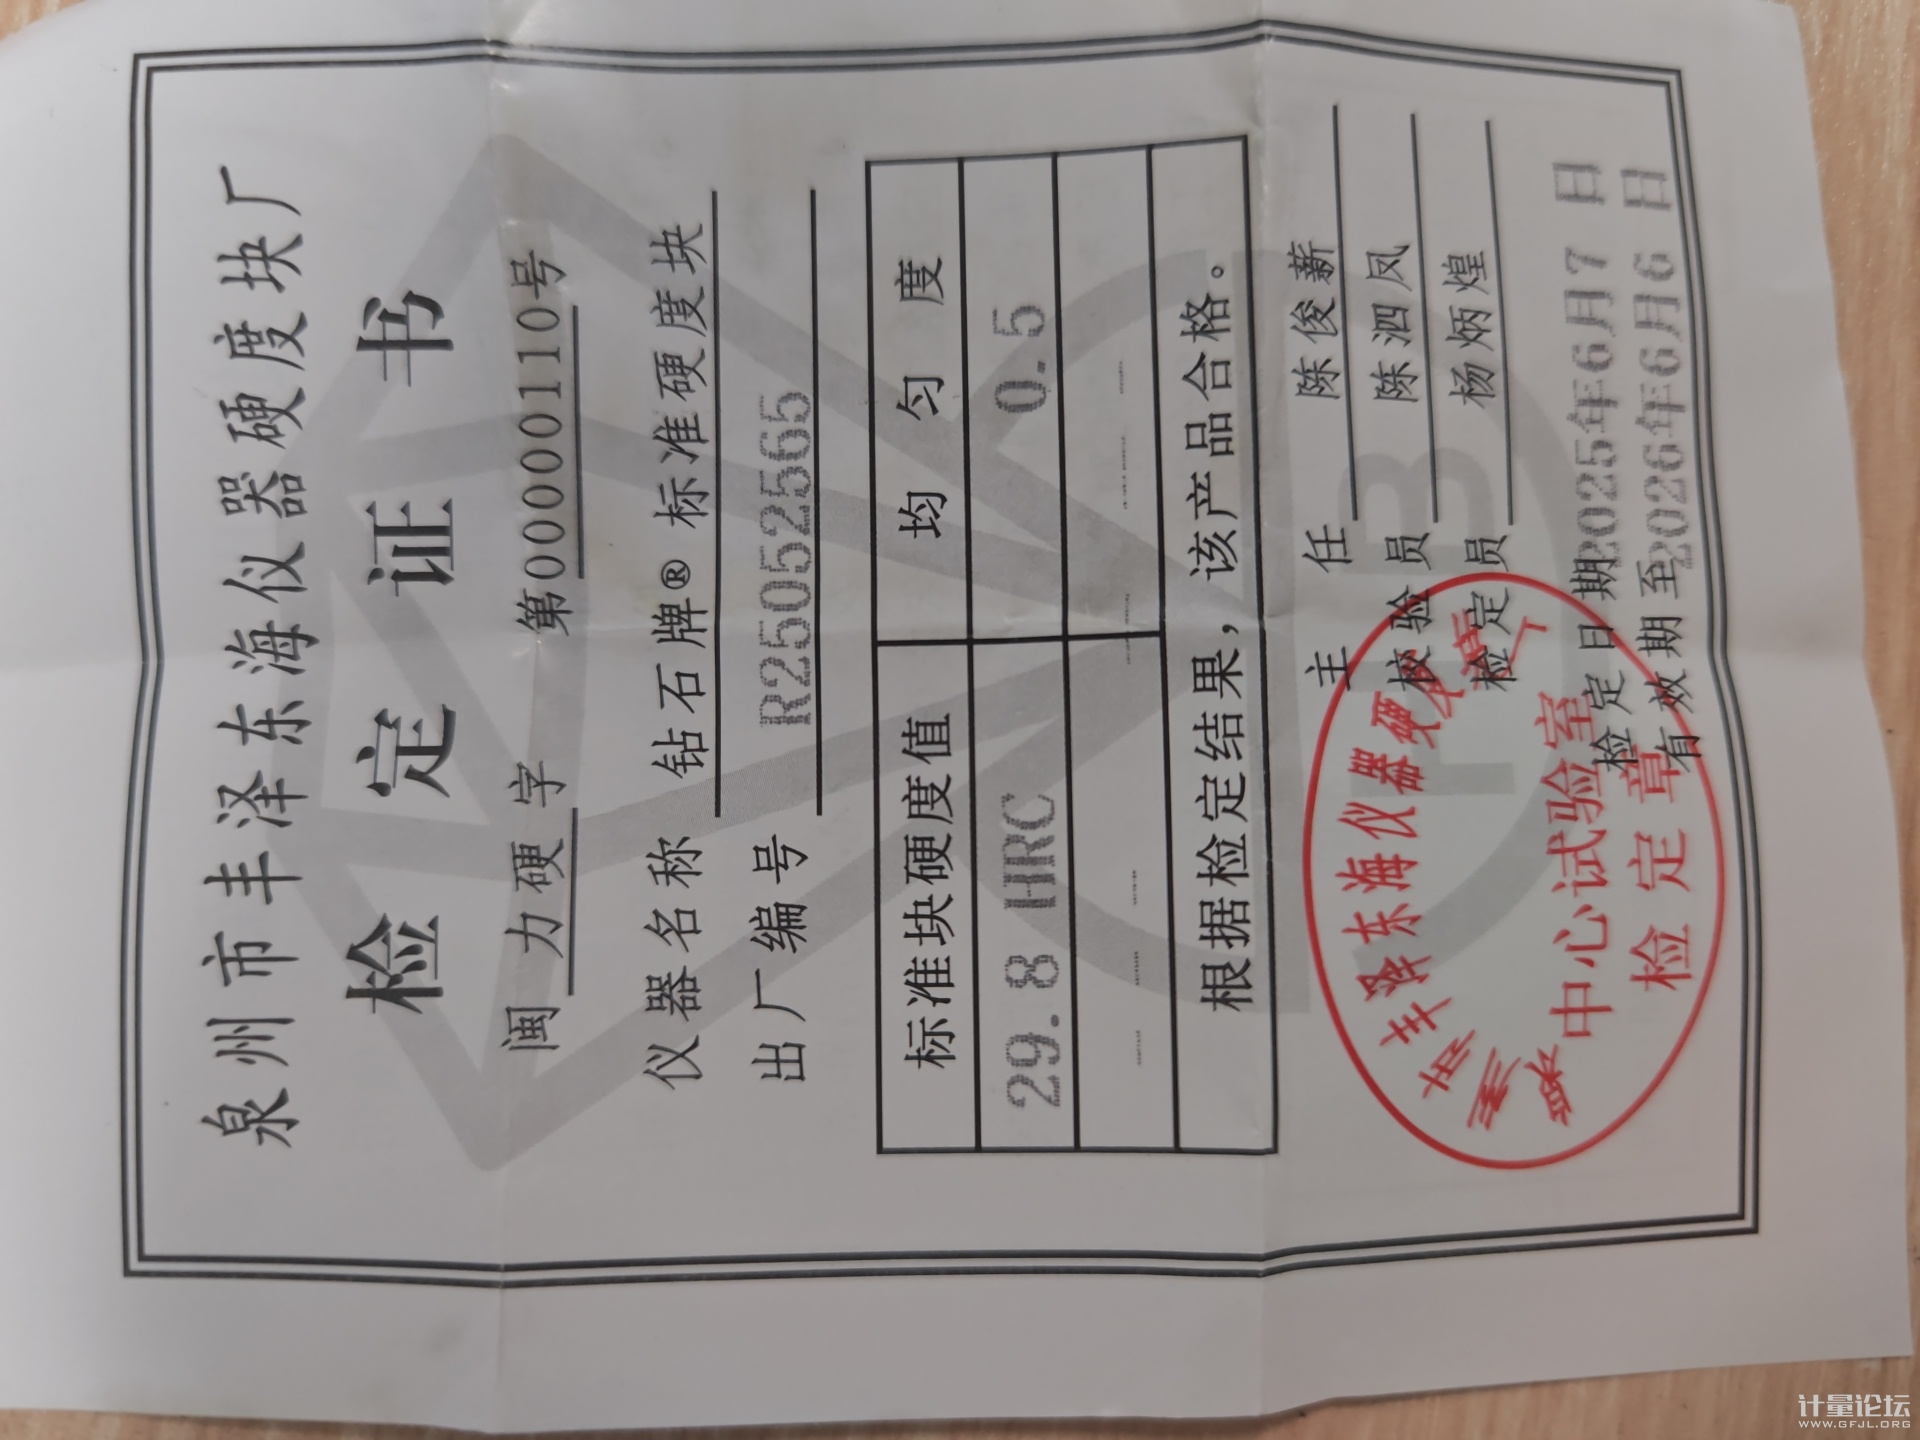 泉州市丰泽东海仪器硬度块厂
检定证书
闽 力硬 字 第000000110号
仪器名称 钻石牌® 标准硬度块
出厂编号 R25052565
标准块硬度值 均匀度
29.8 HRC 0.5
根据检定结果，该产品合格。
主任 陈俊薪
校验员 陈泗凤
检定员 杨炳煌
检定日期2025年6月7日
有效期至2026年6月6日
泉州市丰泽东海仪器硬度块厂
中心试验室
检定章
计量论坛
WWW.GFJL.ORG